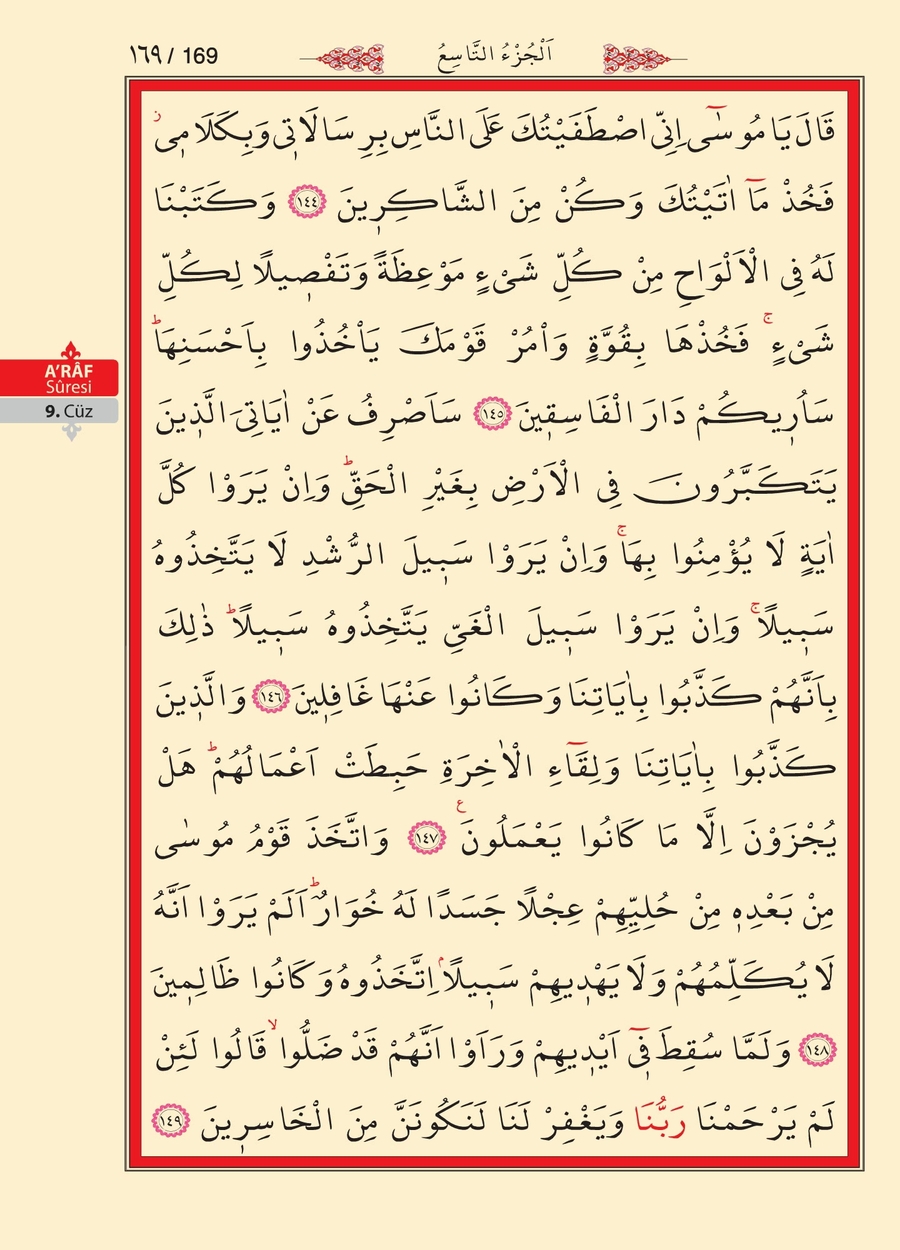 ١٦٩ / 169
اَلْجُزْءُ التَّاسِعُ
A'RÂF
Sûresi
9. Cüz
قَالَ يَا مُوسٰٓى اِنِّى اصْطَفَيْتُكَ عَلَى النَّاسِ بِرِسَالَاتٖى وَبِكَلَامٖىۘ
فَخُذْ مَٓا اٰتَيْتُكَ وَكُنْ مِنَ الشَّاكِرٖينَ ﴿١٤٤﴾ وَكَتَبْنَا
لَهُ فِى الْاَلْوَاحِ مِنْ كُلِّ شَىْءٍ مَوْعِظَةً وَتَفْصٖيلًا لِكُلِّ
شَىْءٍۚ فَخُذْهَا بِقُوَّةٍ وَاْمُرْ قَوْمَكَ يَاْخُذُوا بِاَحْسَنِهَاؕ
سَاُرٖيكُمْ دَارَ الْفَاسِقٖينَ ﴿١٤٥﴾ سَاَصْرِفُ عَنْ اٰيَاتِىَ الَّذٖينَ
يَتَكَبَّرُونَ فِى الْاَرْضِ بِغَيْرِ الْحَقِّؕ وَاِنْ يَرَوْا كُلَّ
اٰيَةٍ لَا يُؤْمِنُوا بِهَاۚ وَاِنْ يَرَوْا سَبٖيلَ الرُّشْدِ لَا يَتَّخِذُوهُ
سَبٖيلًاۚ وَاِنْ يَرَوْا سَبٖيلَ الْغَىِّ يَتَّخِذُوهُ سَبٖيلًاؕ ذٰلِكَ
بِاَنَّهُمْ كَذَّبُوا بِاٰيَاتِنَا وَكَانُوا عَنْهَا غَافِلٖينَ ﴿١٤٦﴾ وَالَّذٖينَ
كَذَّبُوا بِاٰيَاتِنَا وَلِقَٓاءِ الْاٰخِرَةِ حَبِطَتْ اَعْمَالُهُمْؕ هَلْ
يُجْزَوْنَ اِلَّا مَا كَانُوا يَعْمَلُونَ ع ﴿١٤٧﴾ وَاتَّخَذَ قَوْمُ مُوسٰى
مِنْ بَعْدِهٖ مِنْ حُلِيِّهِمْ عِجْلًا جَسَدًا لَهُ خُوَارٌؕ اَلَمْ يَرَوْا اَنَّهُ
لَا يُكَلِّمُهُمْ وَلَا يَهْدٖيهِمْ سَبٖيلًاۢ اِتَّخَذُوهُ وَكَانُوا ظَالِمٖينَ
﴿١٤٨﴾ وَلَمَّا سُقِطَ فٖٓى اَيْدٖيهِمْ وَرَاَوْا اَنَّهُمْ قَدْ ضَلُّواۙ قَالُوا لَئِنْ
لَمْ يَرْحَمْنَا رَبُّنَا وَيَغْفِرْ لَنَا لَنَكُونَنَّ مِنَ الْخَاسِرٖينَ ﴿١٤٩﴾